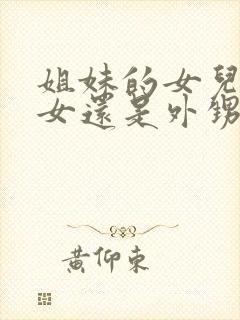 姐妹的女兒
女還是外甥
黃仰東